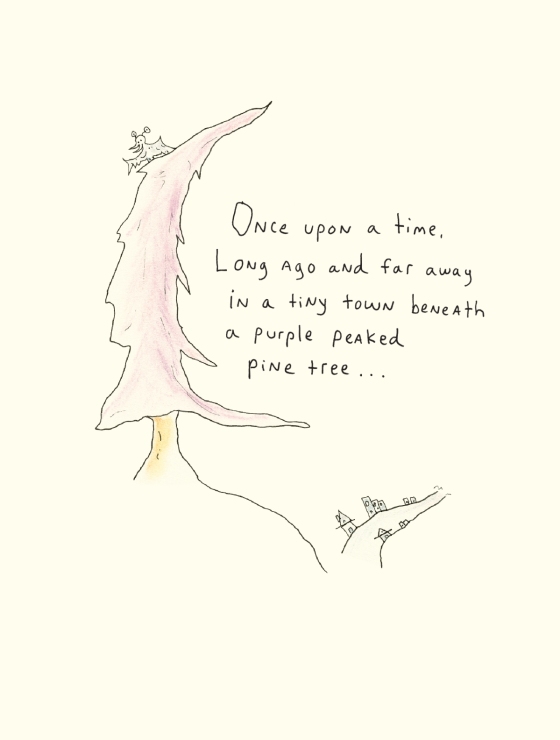 Once upon a time,
Long ago and far away
in a tiny town beneath
a purple peaked
pine tree...